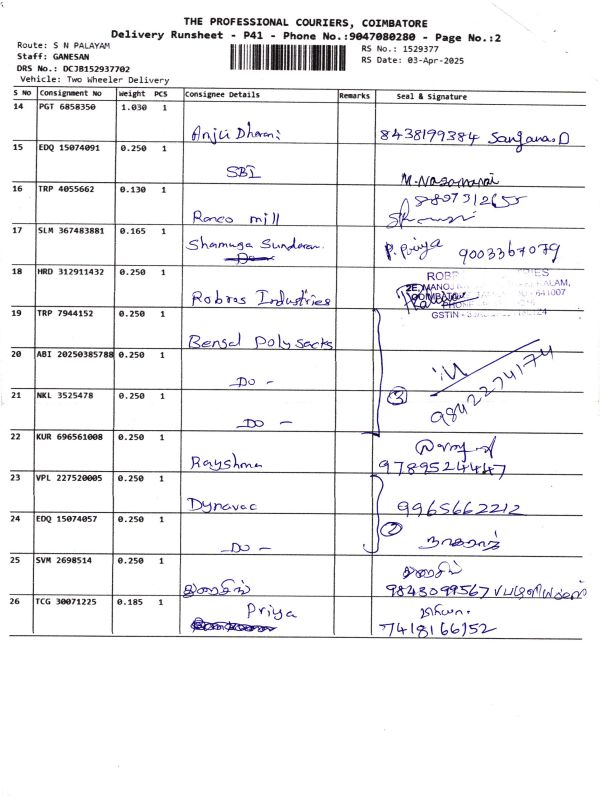 THE PROFESSIONAL COURIERS, COIMBATORE
Delivery Runsheet - P41 - Phone No.:9047080280 - Page No.:2
Route: S N PALAYAM
Staff: GANESAN
DRS No.: DCJB152937702
Vehicle: Two Wheeler Delivery
RS No.: 1529377
RS Date: 03-Apr-2025
S No Consignment No Weight PCS Consignee Details Remarks Seal & Signature
14 PGT 6858350 1.030 1
Anjli Dharani 8438199384 Sanjanas.D
15 EDQ 15074091 0.250 1
SBI
16 TRP 4055662 0.130 1
8807312655
Ranco mill
17 SLM 367483881 0.165 1
Shamuga Sundaran. P. Priya 9003367079
18 HRD 312911432 0.250 1
Robras Industries
2E, MANOJ
641007
GSTIN -
19 TRP 7944152 0.250 1
Bengal Poly sacks
20 ABI 20250385788 0.250 1
- Do -
9842274174
21 NKL 3525478 0.250 1
3
- Do -
22 KUR 696561008 0.250 1
Rayshma 9789524447
23 VPL 227520005 0.250 1
Dynavac 9965662212
24 EDQ 15074057 0.250 1
2
- Do -
25 SVM 2698514 0.250 1
9843099567
26 TCG 30071225 0.185 1
Priya
7418166152